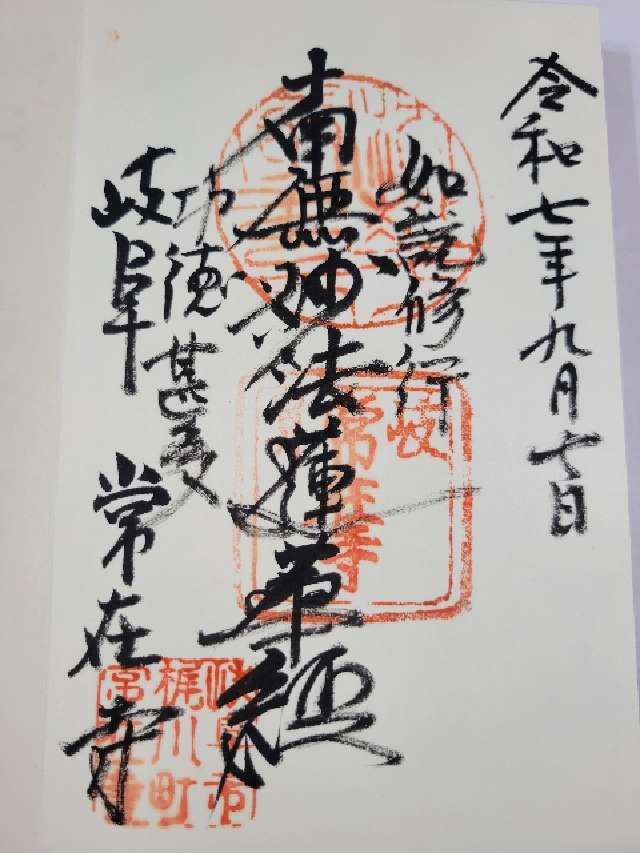 令和七年九月七日
如説修行
南無妙法蓮華経
功徳甚多
岐阜 常在寺
岐阜市
梶川町
常在寺